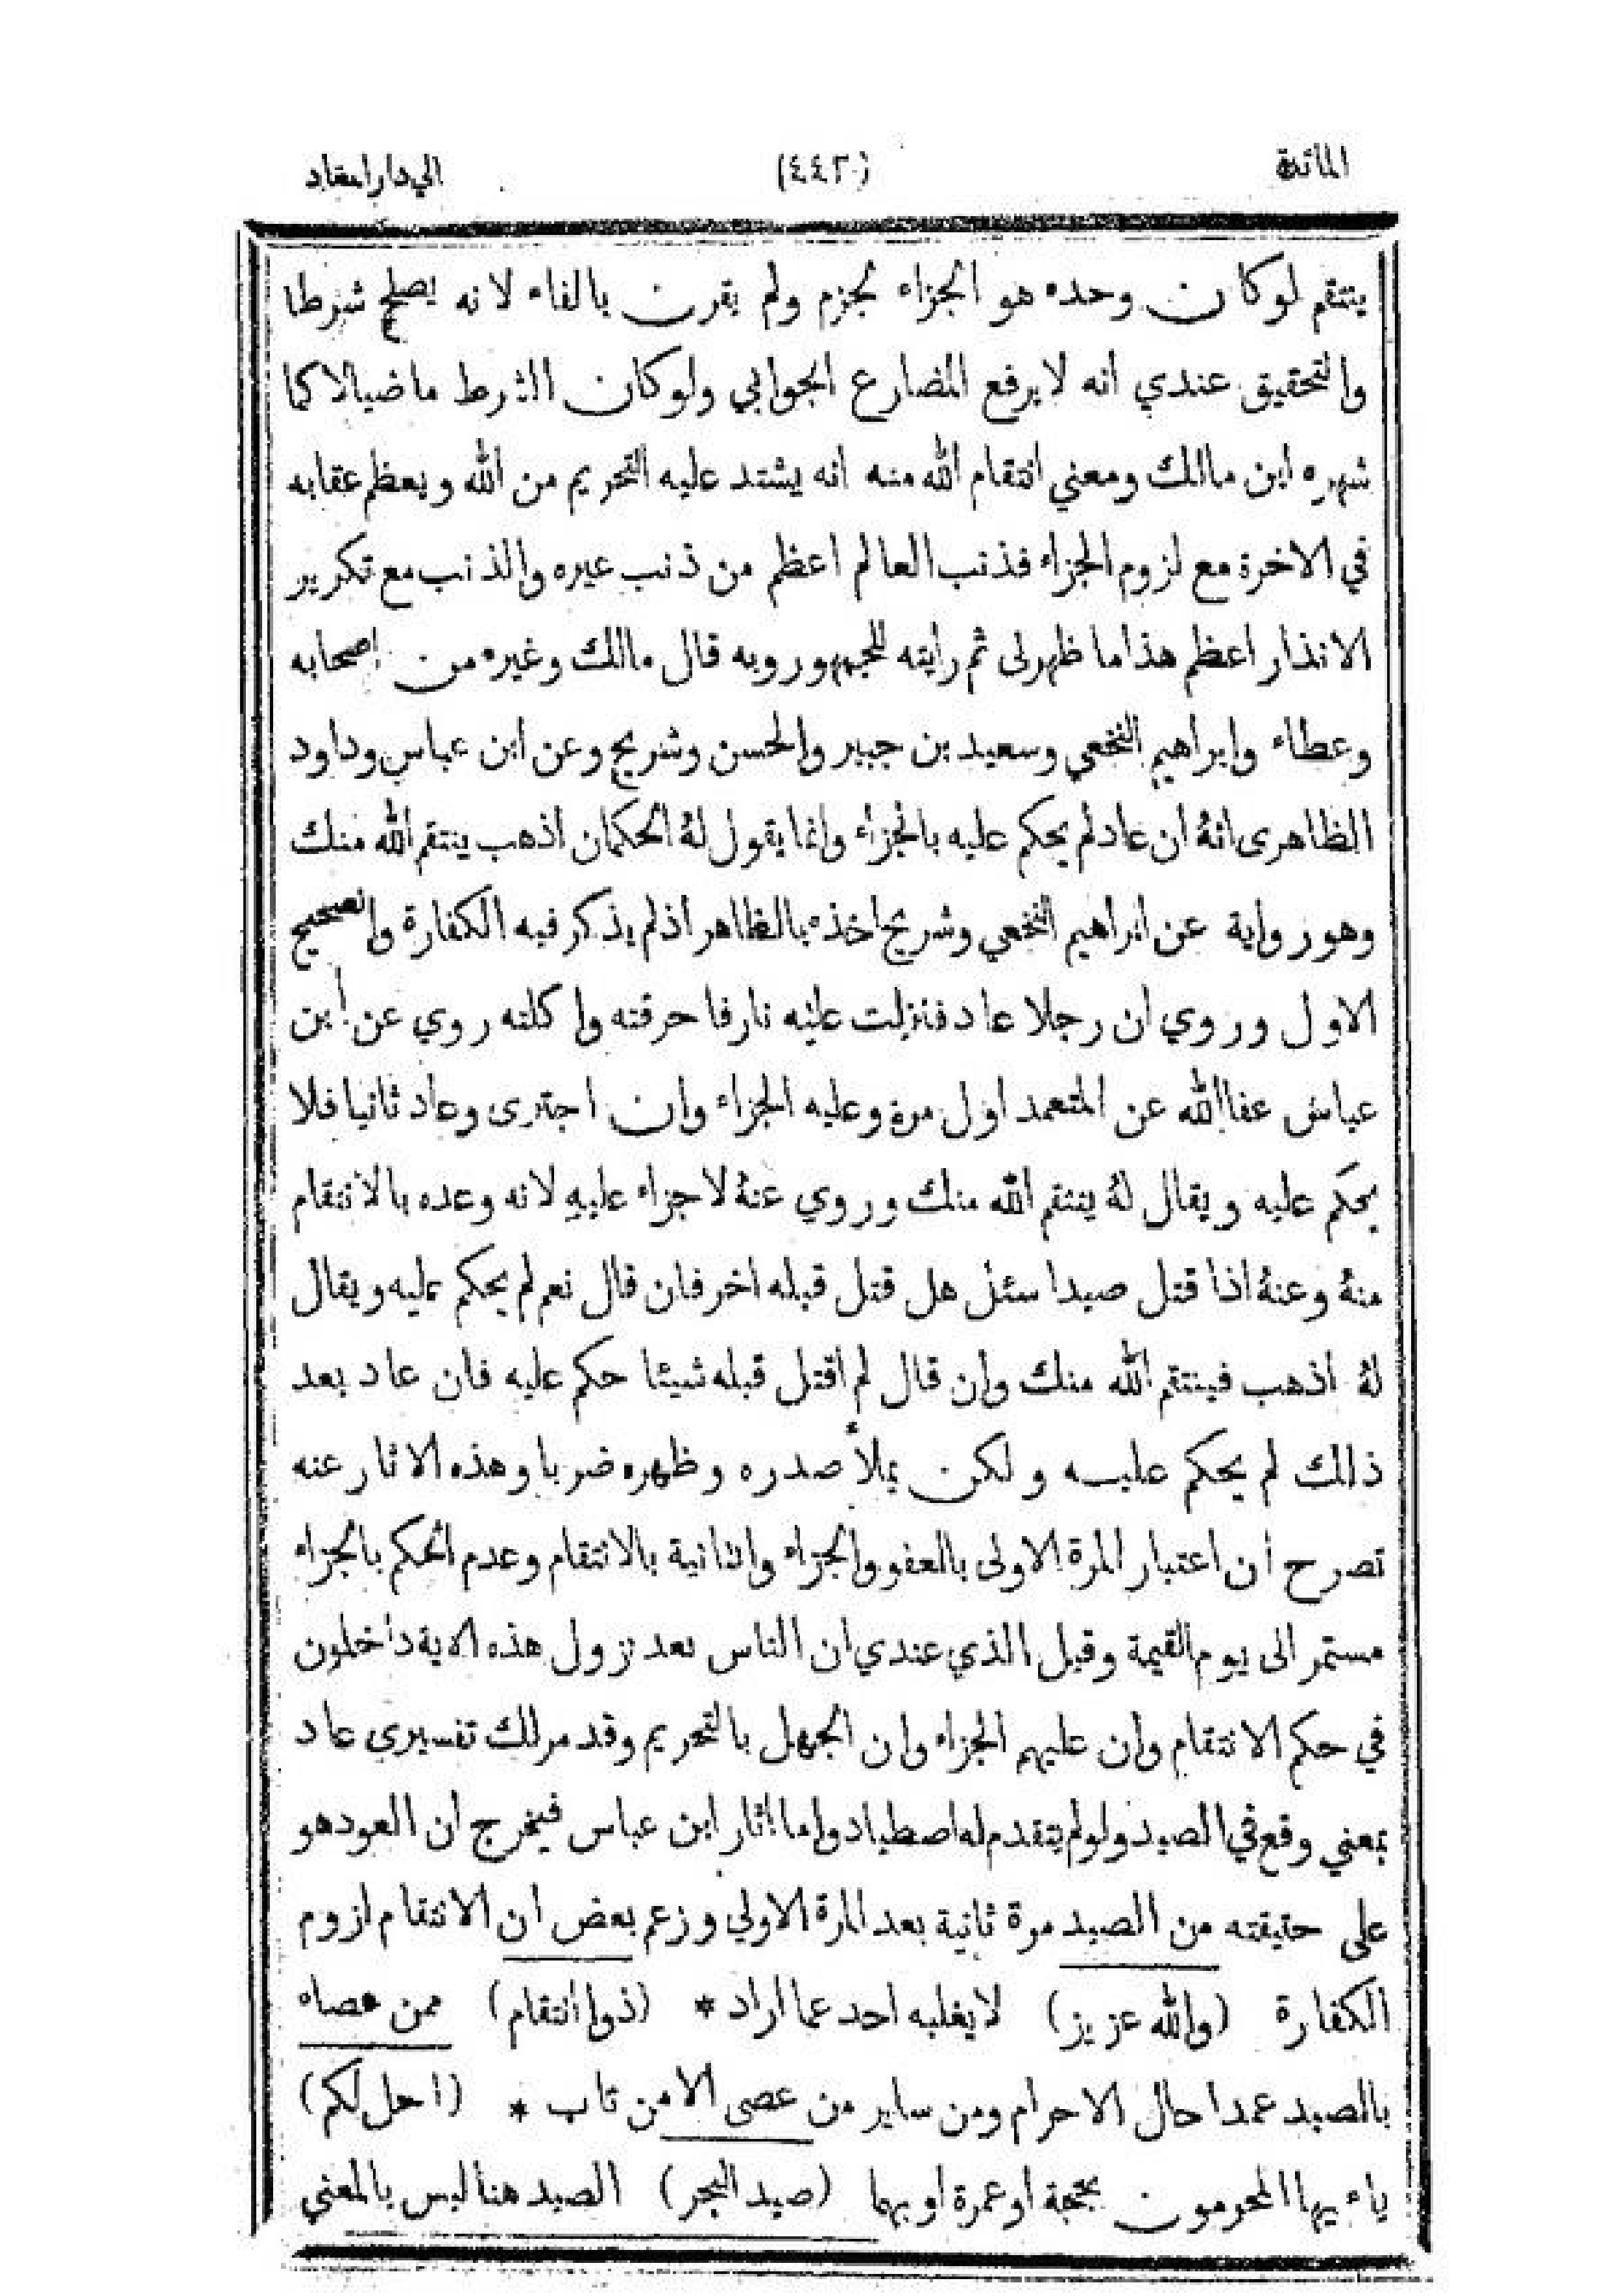 المائدة
(٤٤٢)
الي دار امعاد
ينتقم لو كان وحده هو الجزاء لجزم ولم يقرن بالفاء لانه يصلح شرطا
والتحقيق عندي انه لا يرفع المضارع الجوابي ولو كان الشرط ماضيا لا كما
شهره ابن مالك ومعني انتقام الله منه انه يشتد عليه التحريم من الله ويعظم عقابه
في الاخرة مع لزوم الجزاء فذنب العالم اعظم من ذنب عيره والذنب مع تكرير
الانذار اعظم هذا ما ظهر لى ثم رأيته للجمهور وبه قال مالك وغيره من اصحابه
وعطاء وابراهيم النخعي وسعيد بن جبير والحسن وشريح وعن ابن عباس وداود
الظاهرى انهُ ان عاد لم يحكم عليه بالجزاء وانما يقول لهُ الحكمان اذهب ينتقم الله منك
وهو رواية عن ابراهيم النخعي وشريح اخذه بالظاهر اذ لم يذكر فيه الكفارة والصحيح
الاول وروي ان رجلا عاد فنزلت عليه نار فاحرقته واكلته روي عن ابن
عباس عفا الله عن المتعمد اول مرة وعليه الجزاء وان اجترى وعاد ثانيا فلا
يحكم عليه ويقال لهُ ينتقم الله منك وروي عنهُ لا جزاء عليهِ لانه وعده بالانتقام
منهُ وعنهُ اذا قتل صيدا سئل هل قتل قبله اخر فان قال نعم لم يحكم عليه ويقال
لهُ اذهب فينتقم الله منك وان قال لم اقتل قبله شيئا حكم عليه فان عاد بعد
ذالك لم يحكم عليه ولكن يملأ صدره وظهره ضربا وهذه الاثار عنه
تصرح أن اعتبار المرة الاولى بالعفو والجزاء والثانية بالانتقام وعدم الحكم بالجزاء
مستمر الى يوم القيمة وقيل الذي عندي ان الناس بعد نزول هذه الاية داخلون
في حكم الانتقام وان عليهم الجزاء وان الجهل بالتحريم وقد مر لك تفسيري عاد
بمعني وقع في الصيد ولو لم يتقدم له اصطياد واما اثار ابن عباس فيخرج ان العود هو
على حقيقته من الصيد مرة ثانية بعد المرة الاولي وزعم بعض ان الانتقام لزوم
الكفارة (والله عزيز) لا يغلبه احد عما اراد * (ذوا انتقام) ممن عصاه
بالصيد عمدا حال الاحرام ومن ساير من عصى الا من تاب * (احل لكم)
ياءيها المحرمون بحجة او عمرة او بهما (صيد البحر) الصيد هنا ليس بالمعني